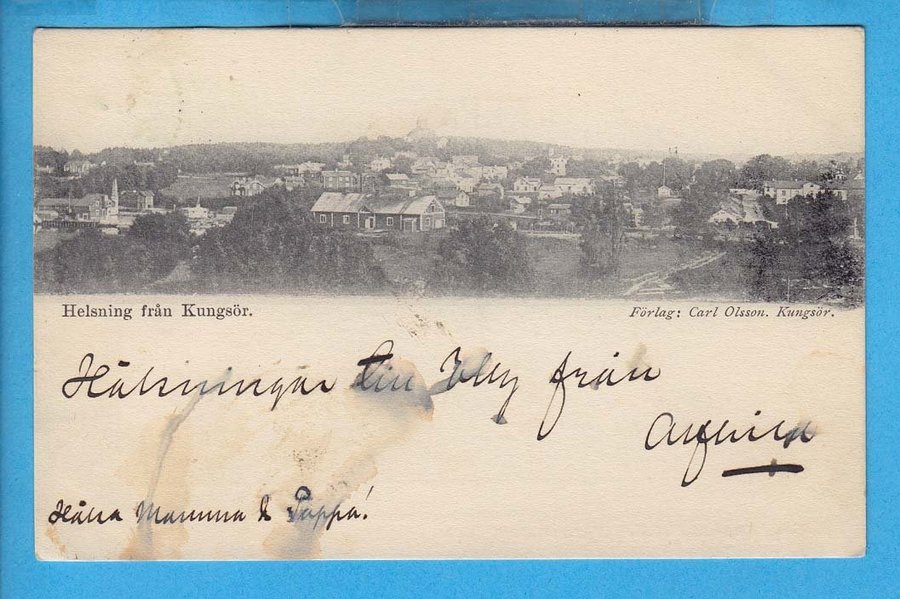 Helsning från Kungsör.
Förlag: Carl Olsson. Kungsör.
Hälsningar till Elly från
Hälsa Mamma & Pappa!